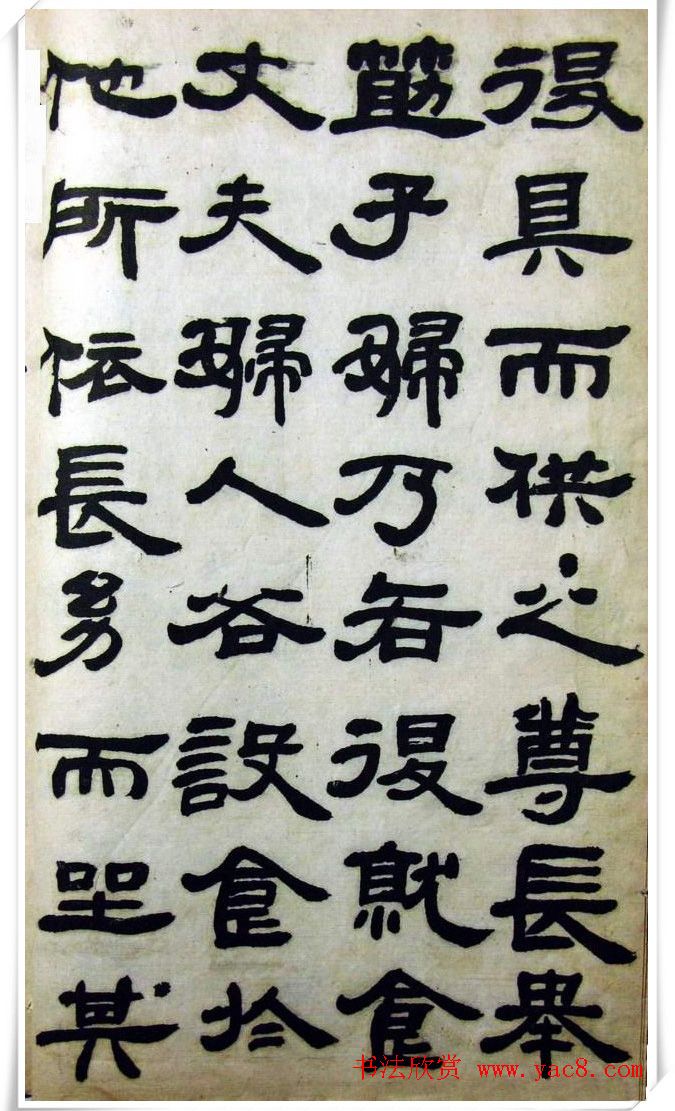 退具而供之尊長舉
筯子婦乃各退就食
丈夫婦人各設食於
他所依長幼而坐其
书法欣赏 www.yac8.com